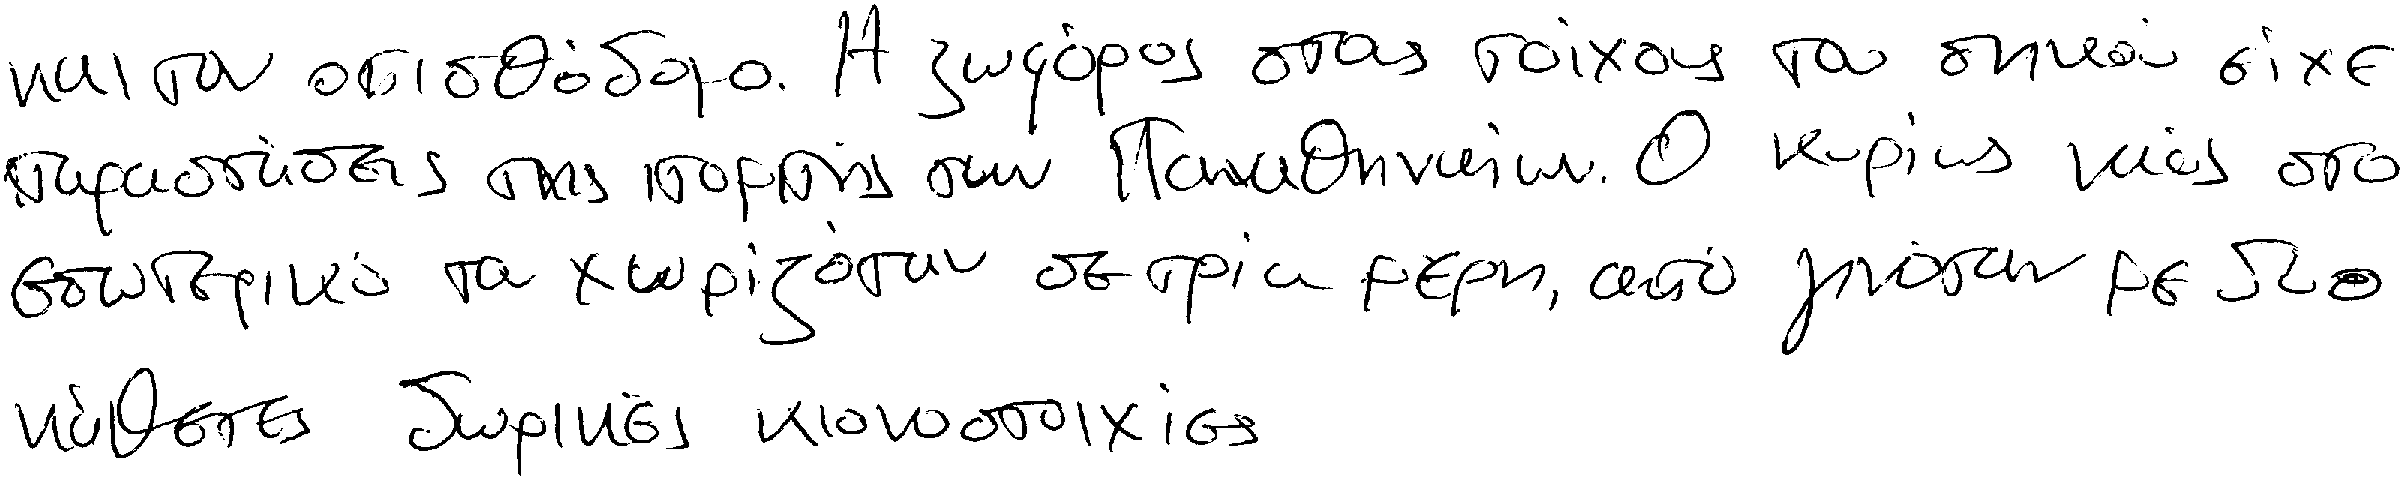 και τον οπισθόδομο. Η ζωφόρος στους τοίχους του σηκού είχε
παραστάσεις της πομπής των Παναθηναίων. Ο κυρίως ναός στο
εσωτερικό του χωριζόταν σε τρία μέρη, αυτό γινόταν με δύο
κάθετες δωρικές κιονοστοιχίες